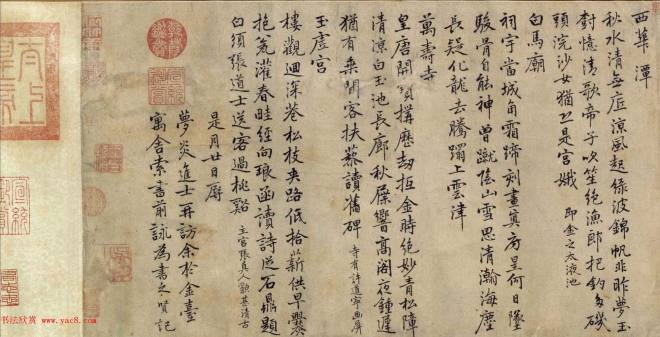 西華潭
秋水清無底涼風起綠波錦帆非昨夢玉
樹憶清歌帝子吹笙絕漁郎把釣多磯
頭浣沙女猶恐是宮娥 即金之太液池
白馬廟
祠宇當城角霜蹄刻畫真房星何日墜
駿骨自能神曾蹴陰山雪思清瀚海塵
長疑化龍去騰躍上雲津
萬壽寺
皇唐開搆歷劫抵金時絕妙青松障
清涼白玉池長廊秋屧響高閣夜鐘遲
猶有乘閒客扶藜讀舊碑 寺有許道寧画屏
玉虛宮
樓觀迴深巷松枝夾路低拾薪供早爨
抱瓮灌春畦經向琅函讀詩從石鼎題
白須張道士送客過桃谿 主宮張真人甚清古
是月廿日辱
夢炎進士再訪余於金臺
寓舍索書前詠為書之賢記
书法欣赏 www.yac8.com